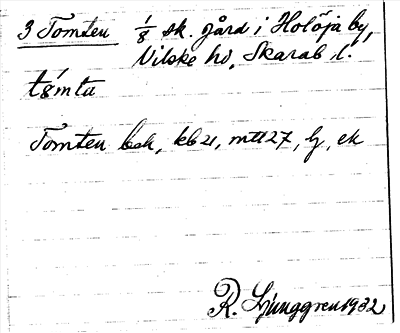 3 Tomten 1/8 sk. gård i Holöja by,
Vilske hd, Skarab. l.
tömta
Tomten bsk, kb 21, mtt 27, lj, ek
R. Ljunggren 1932